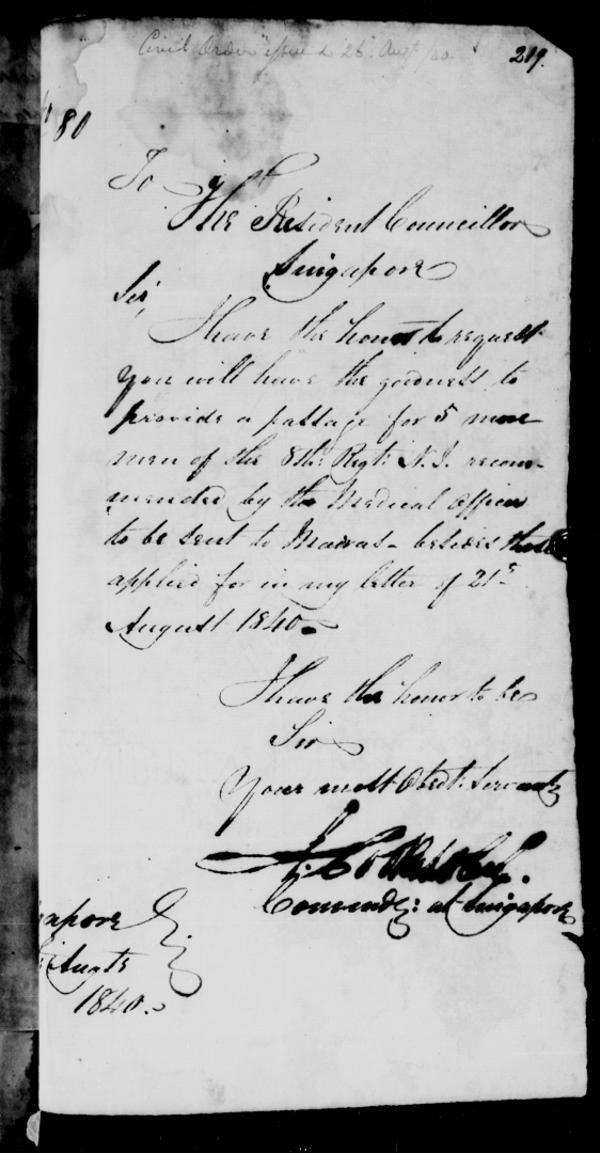 Civil Order issued 26 Augt /40.
219.
80
To
The Resident Councillor
Singapore
Sir,
I have the honor to request
you will have the goodness to
provide a passage for 5 more
men of the 8th Regt. N.I. recom-
mended by the Medical Officer
to be sent to Madras - besides those
applied for in my letter of 21st
August 1840.
I have the honor to be
Sir
Your most Obedt. Servant
Commdg: at Singapore
apore
Augte
1840.